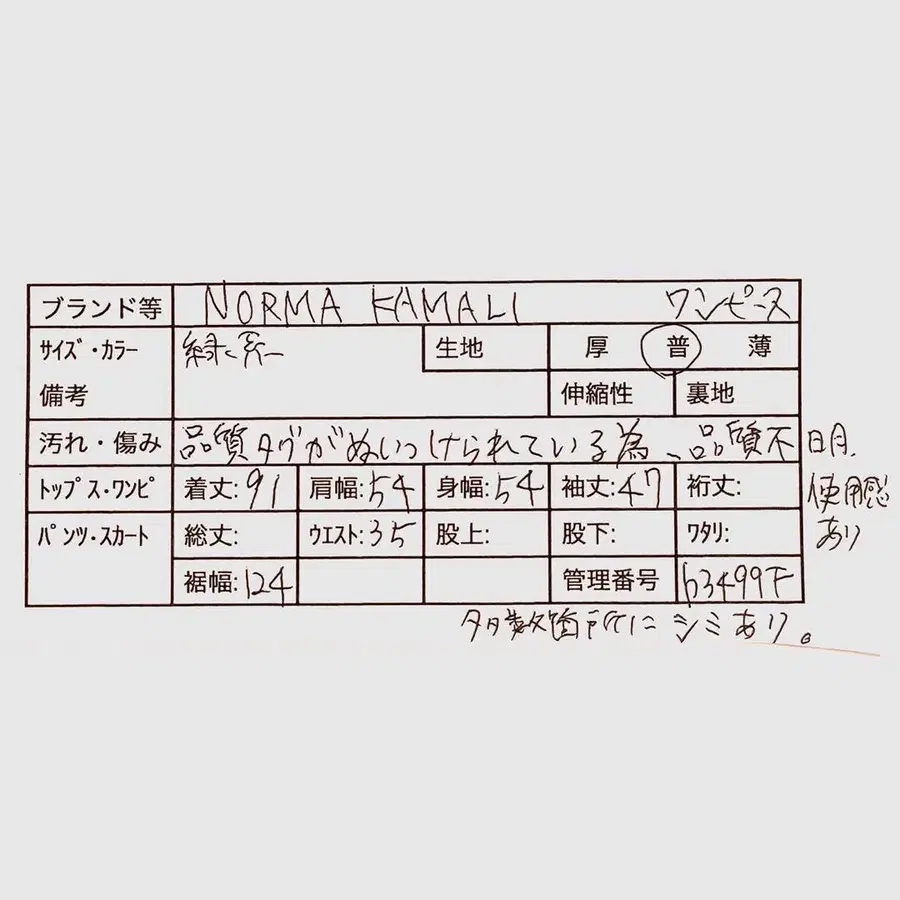 ブランド等 NORMA KAMALI ワンピース
サイズ・カラー 緑系 生地 厚 普 薄
備考 伸縮性 裏地
汚れ・傷み 品質タグがぬいつけられている為、品質不明。
使用感
あり
トップス・ワンピ 着丈:91 肩幅:54 身幅:54 袖丈:47 裄丈:
パンツ・スカート 総丈: ウエスト:35 股上: 股下: ワタリ:
裾幅:124 管理番号 b3499F
多数箇所に シミあり。